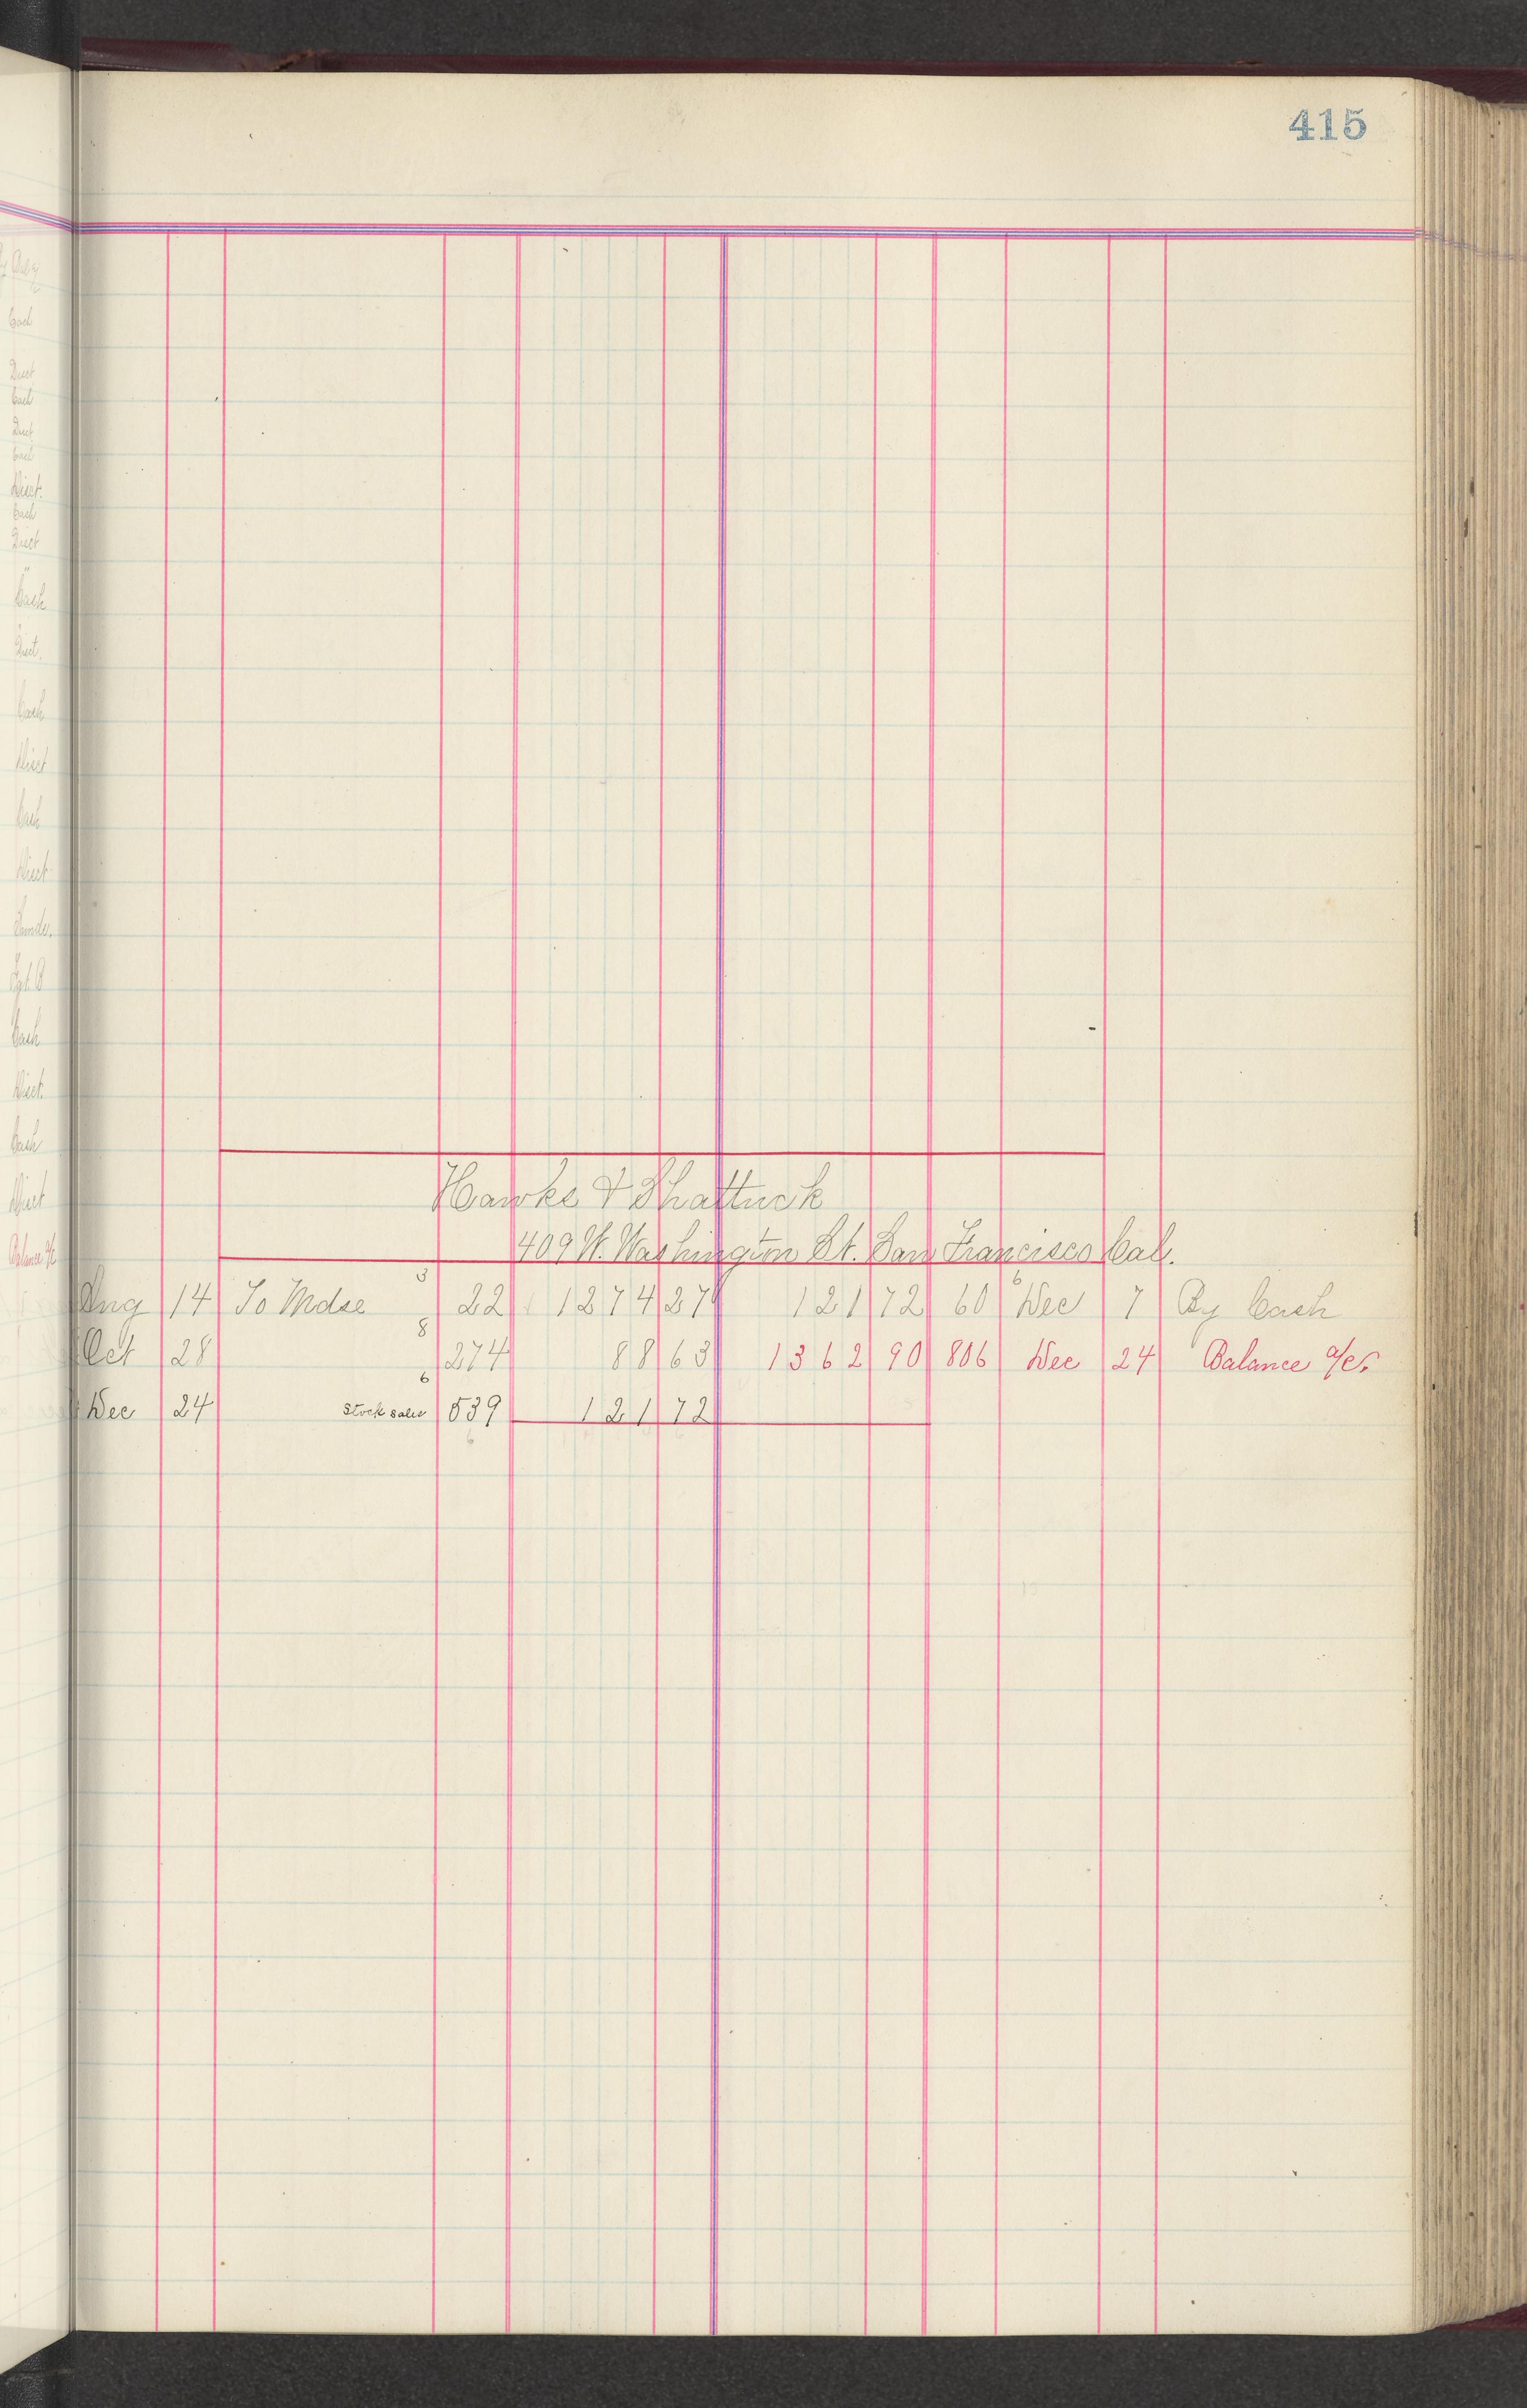 415
Hawks & Shattuck
409 W. Washington St. San Francisco Cal.
Aug 14 To Mdse 3 22 1274 27 121 72 60 6 Dec 7 By Cash
Oct 28 8 274 88 63 1362 90 806 Dec 24 Balance a/c.
Dec 24 Stock sales 6 539 121 72
Cash
Disct
Cash
Disct
Cash
Disct.
Cash
Disct
Cash
Disct.
Cash
Disct
Cash
Disct
Cash
Disct.
Cash
Disct
Balance a/c